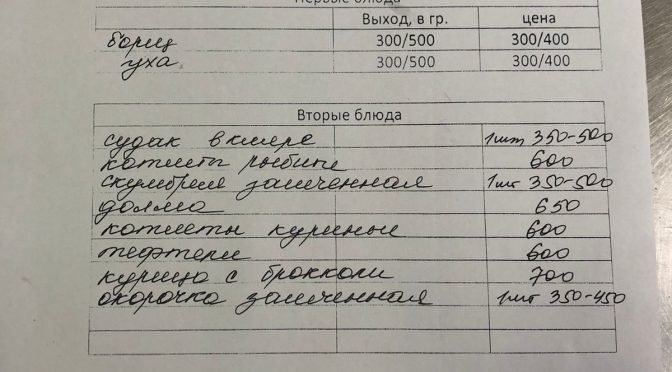 Первые блюда
Выход, в гр. цена
борщ 300/500 300/400
уха 300/500 300/400
Вторые блюда
судак в кляре 1шт 350-500
котлеты рыбные 600
скумбрея запеченная 1шт 350-500
долма 650
котлеты куриные 600
тефтели 600
курица с брокколи 700
окорочка запеченная 1шт 350-450